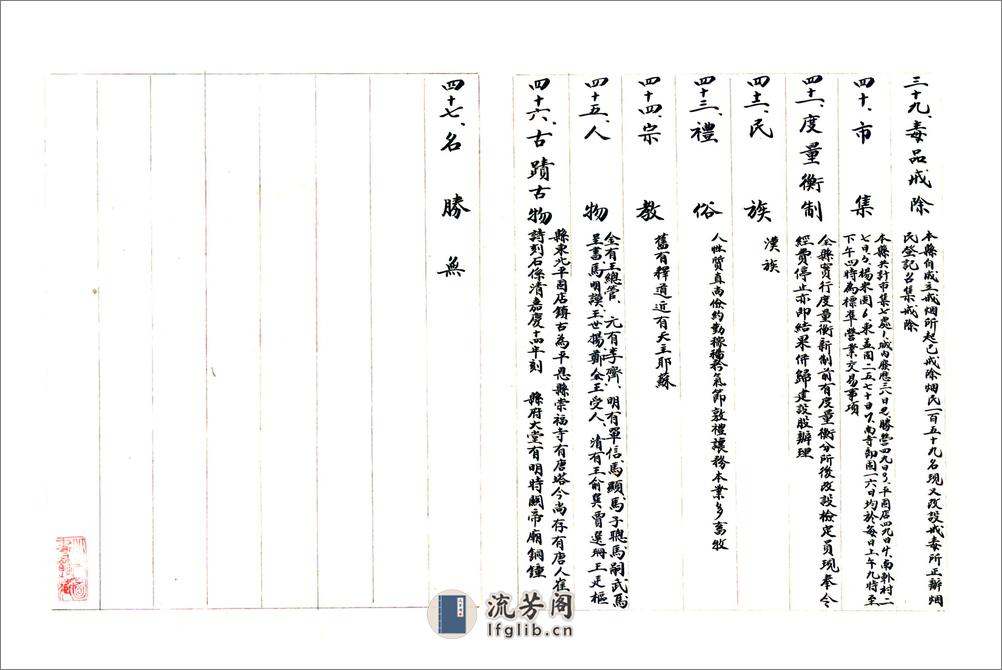 三十九、毒品戒除
本縣自成立戒烟所起已戒除烟民一百五十九名現又改設戒毒所正辦烟
民登記名集戒除
四十、市集
本縣共計市集七處 城內廢應三八日 勝營四九日 平固店四九日 南韓村二
七日 楊米固 東孟固二五七十日 南寺郎固一六日均於每日上午九時至
下午四時為標準營業交易事項
四十一、度量衡制
全縣實行度量衡新制前有度量衡分所後改設檢定員現奉令
經費停止亦即結果併歸建設股辦理
四十二、民族
漢族
四十三、禮俗
人性質直尚儉約勤稼穡矜氣節敦禮讓務本業多畜牧
四十四、宗教
舊有釋道近有天主耶蘇
四十五、人物
金有王總管、元有李齊、明有單信、馬顯、馬子聰馬嗣武馬
呈書、馬明謨王世揚鄭金王受人、清有王俞巽賈選珊王廷樞
四十六、古蹟古物
縣東北平固店鎮古為平恩縣崇福寺有唐塔今尚存有唐人崔
詩刻石係清嘉慶十四年刻 縣府大堂有明時關帝廟銅鐘
四十七、名勝
無
流芳阁
lfglib.cn